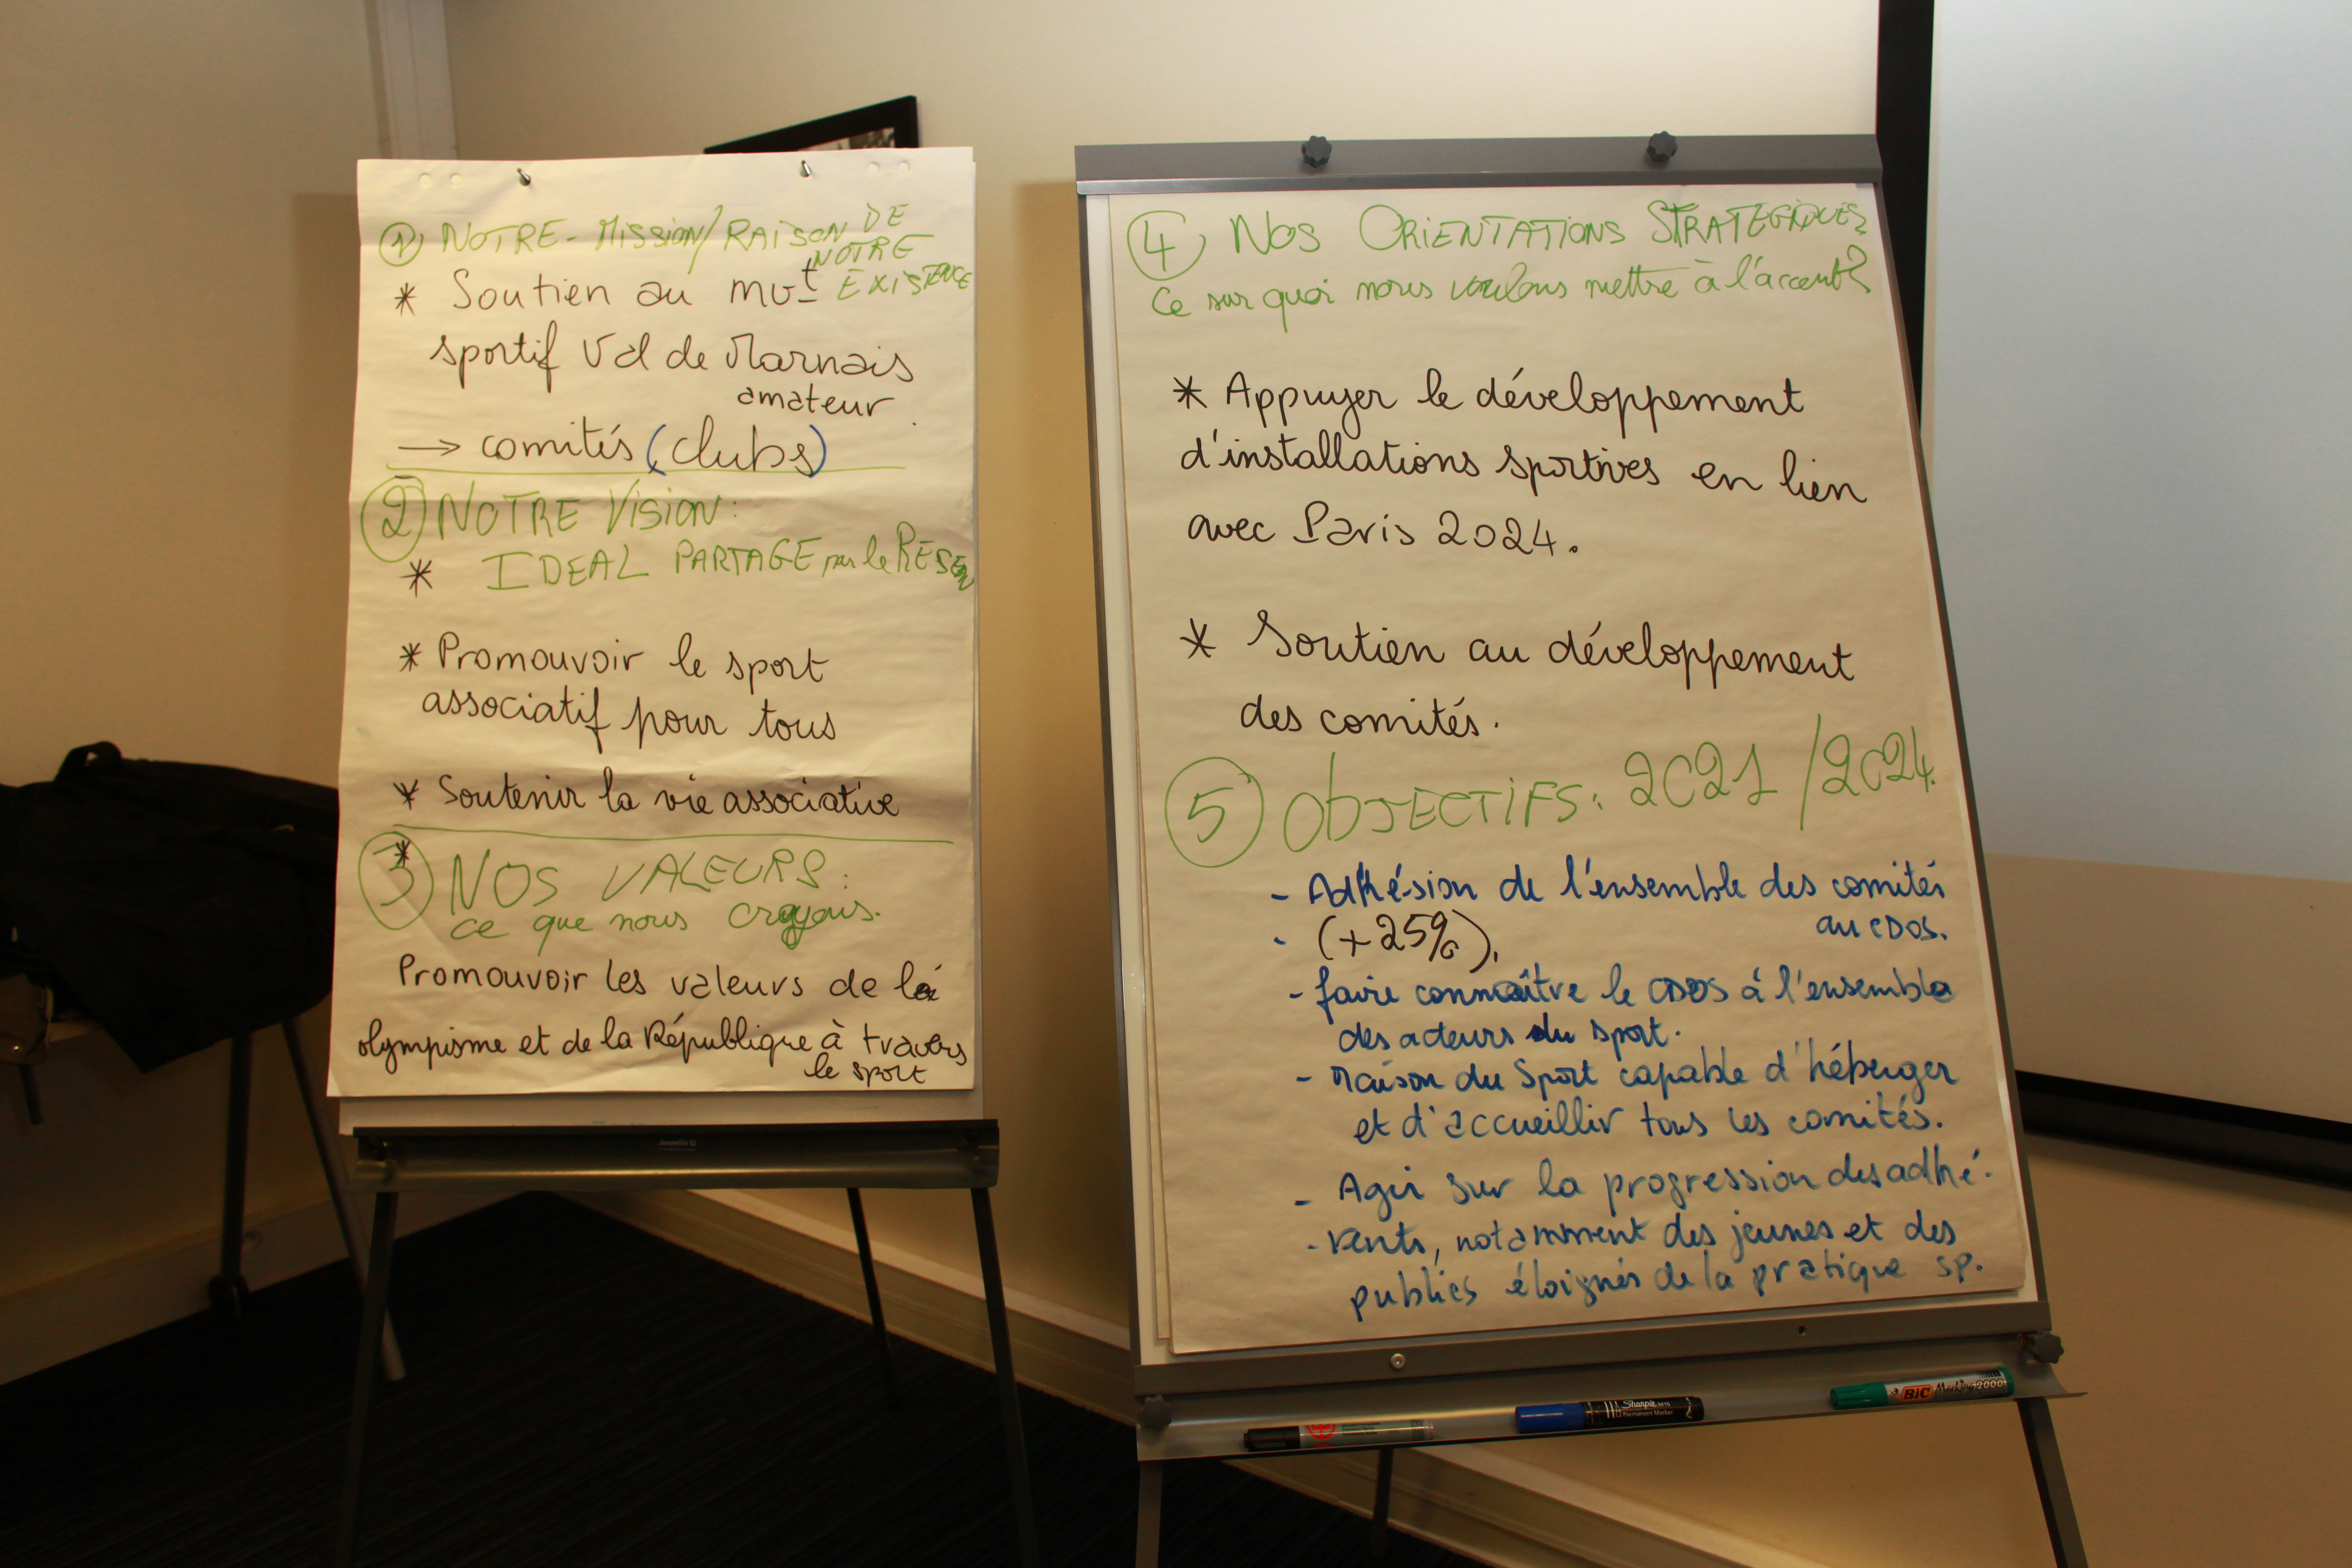 ① NOTRE - Mission/RAISON DE
NOTRE
EXISTENCE
* Soutien au mvt
sportif Val de Marnais
amateur
→ comités (clubs)
② NOTRE VISION:
* IDEAL PARTAGE par le RESEAU
* Promouvoir le sport
associatif pour tous
* Soutenir la vie associative
③ NOS VALEURS:
ce que nous croyons.
Promouvoir les valeurs de
olympisme et de la République à travers
le sport
④ NOS ORIENTATIONS STRATEGIQUES
Ce sur quoi nous voulons mettre à l'accent?
* Appuyer le développement
d'installations sportives en lien
avec Paris 2024.
* Soutien au développement
des comités.
⑤ ObJECTIFS: 2021/2024
- Adhésion de l'ensemble des comités
au CDOS.
- (+25%).
- faire connaître le CDOS à l'ensemble
des acteurs du sport.
- Maison du Sport capable d'héberger
et d'accueillir tous les comités.
- Agir sur la progression des adhé-
- rents, notamment des jeunes et des
publics éloignés de la pratique sp.
Sharpie M15
Permanent Marker
BIC Marking 2000